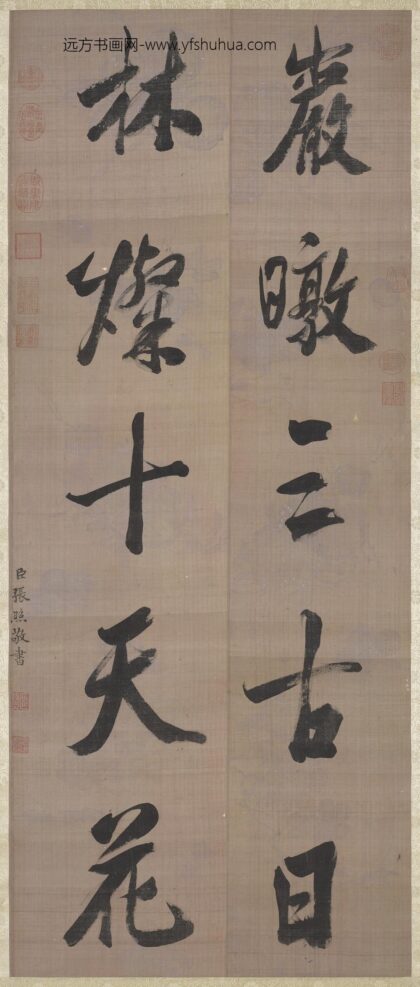 远方书画网-www.yfshuhua.com
巖暾三古日
林燦十天花
臣張照敬書